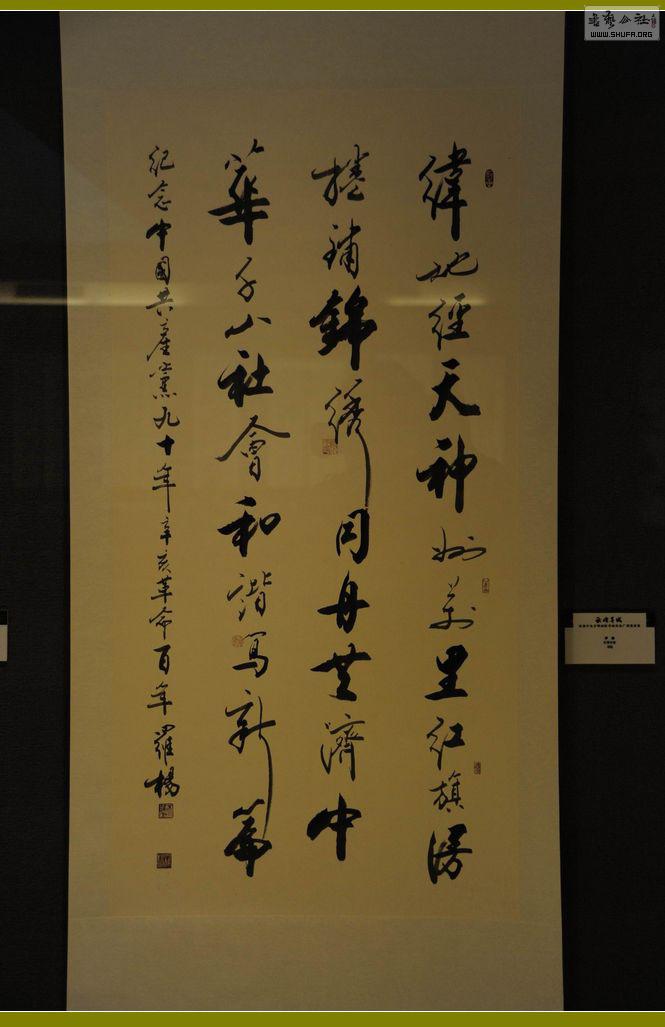 緯地經天神州萬里紅旗漫
捲鋪錦繡同舟共濟中
華社會和諧寫新篇
紀念中國共產黨九十年辛亥革命百年羅楊
書藝公社
WWW.SHUFA.ORG